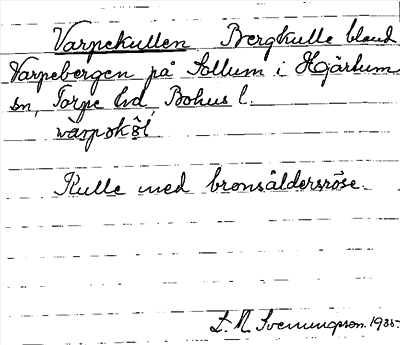 Varpekullen Bergkulle bland
Varpebergen på Sollum i Hjärtum
sn, Torpe hd, Bohus l.
Kulle med bronsåldersröse.
S. M. Svenungsson. 1935.